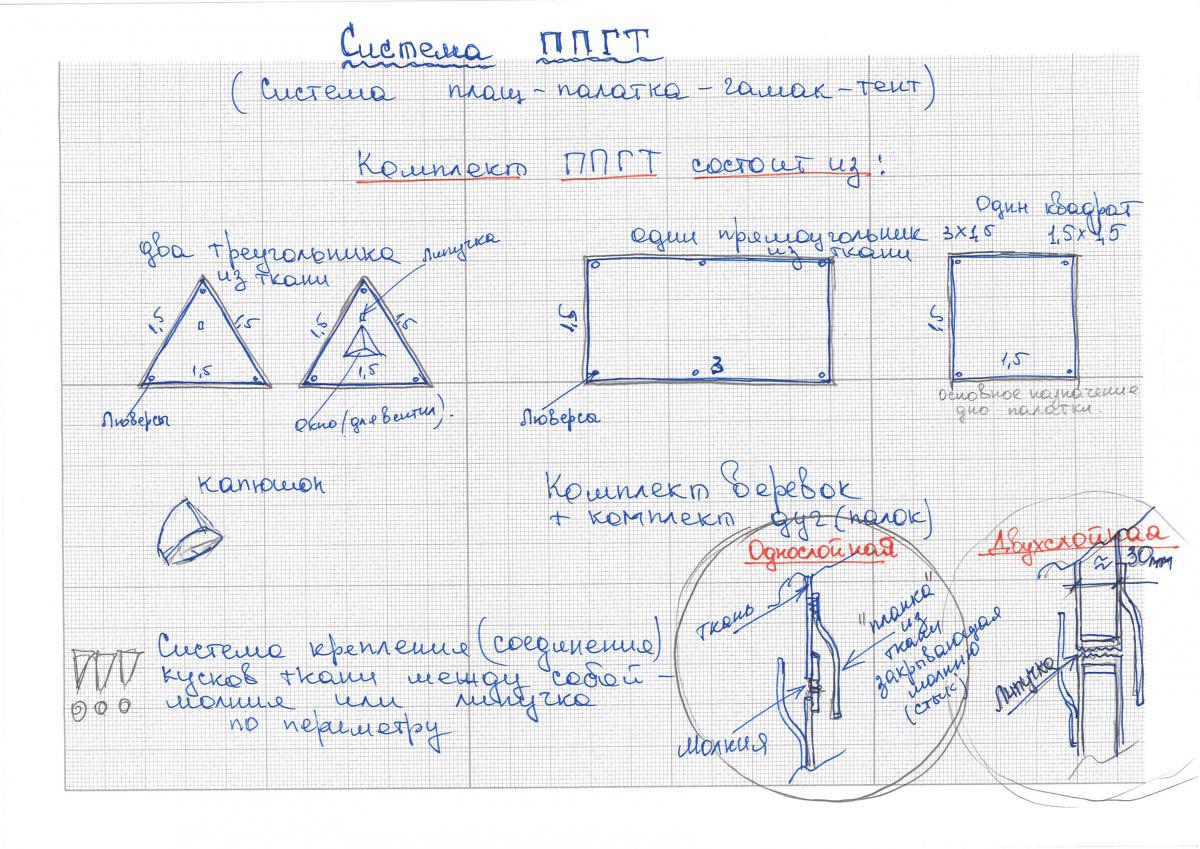 Система ППГТ
(Система плащ-палатка-гамак-тент)
Комплект ППГТ состоит из:
два треугольника
из ткани
Липучка
1,5
1,5
1,5
1,5
1,5
Люверсы
Окно (для вентил).
один прямоугольник 3×1,5
из ткани
1,5
3
Люверсы
Один квадрат
1,5×1,5
1,5
1,5
основное назначение
дно палатки.
капюшон
Комплект веревок
+ комплект дуг (палок)
Система крепления (соединения)
кусков ткани между собой -
молния или липучка
по периметру
!!!
Однослойная
ткань
"планка"
из
ткани
закрывающая
молнию
(стык)
Молния
Двухслойная
≈ 30мм
Липучка